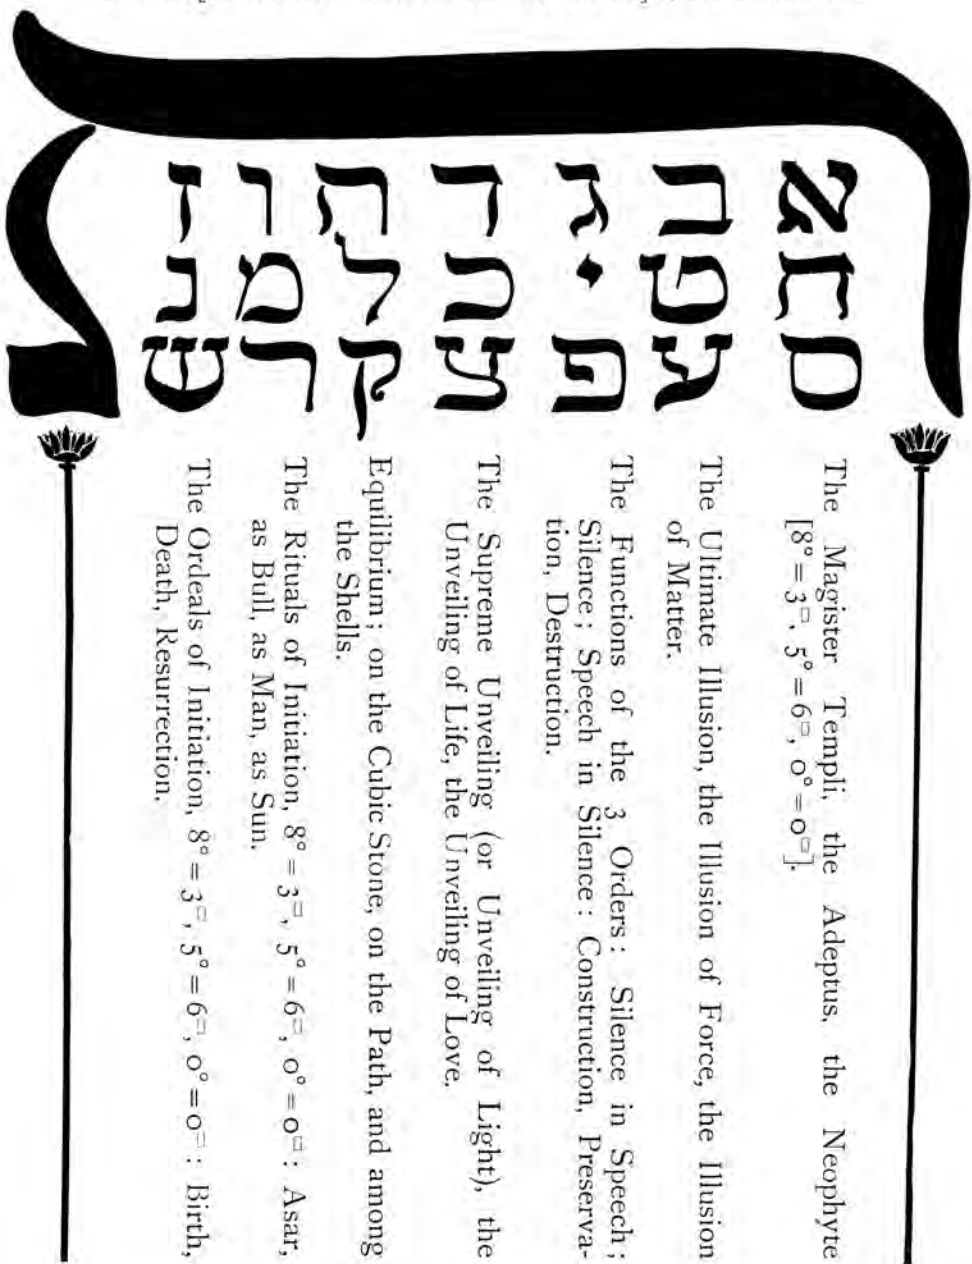 ת
א ב ג ד ה ו ז
ח ט י כ ל מ נ
ס ע פ צ ק ר ש
The Magister Templi, the Adeptus, the Neophyte
[8°=3□, 5°=6□, 0°=0□].
The Ultimate Illusion, the Illusion of Force, the Illusion
of Matter.
The Functions of the 3 Orders: Silence in Speech;
Silence; Speech in Silence: Construction, Preserva-
tion, Destruction.
The Supreme Unveiling (or Unveiling of Light), the
Unveiling of Life, the Unveiling of Love.
Equilibrium; on the Cubic Stone, on the Path, and among
the Shells.
The Rituals of Initiation, 8°=3□, 5°=6□, 0°=0□: Asar,
as Bull, as Man, as Sun.
The Ordeals of Initiation, 8°=3□, 5°=6□, 0°=0□: Birth,
Death, Resurrection.